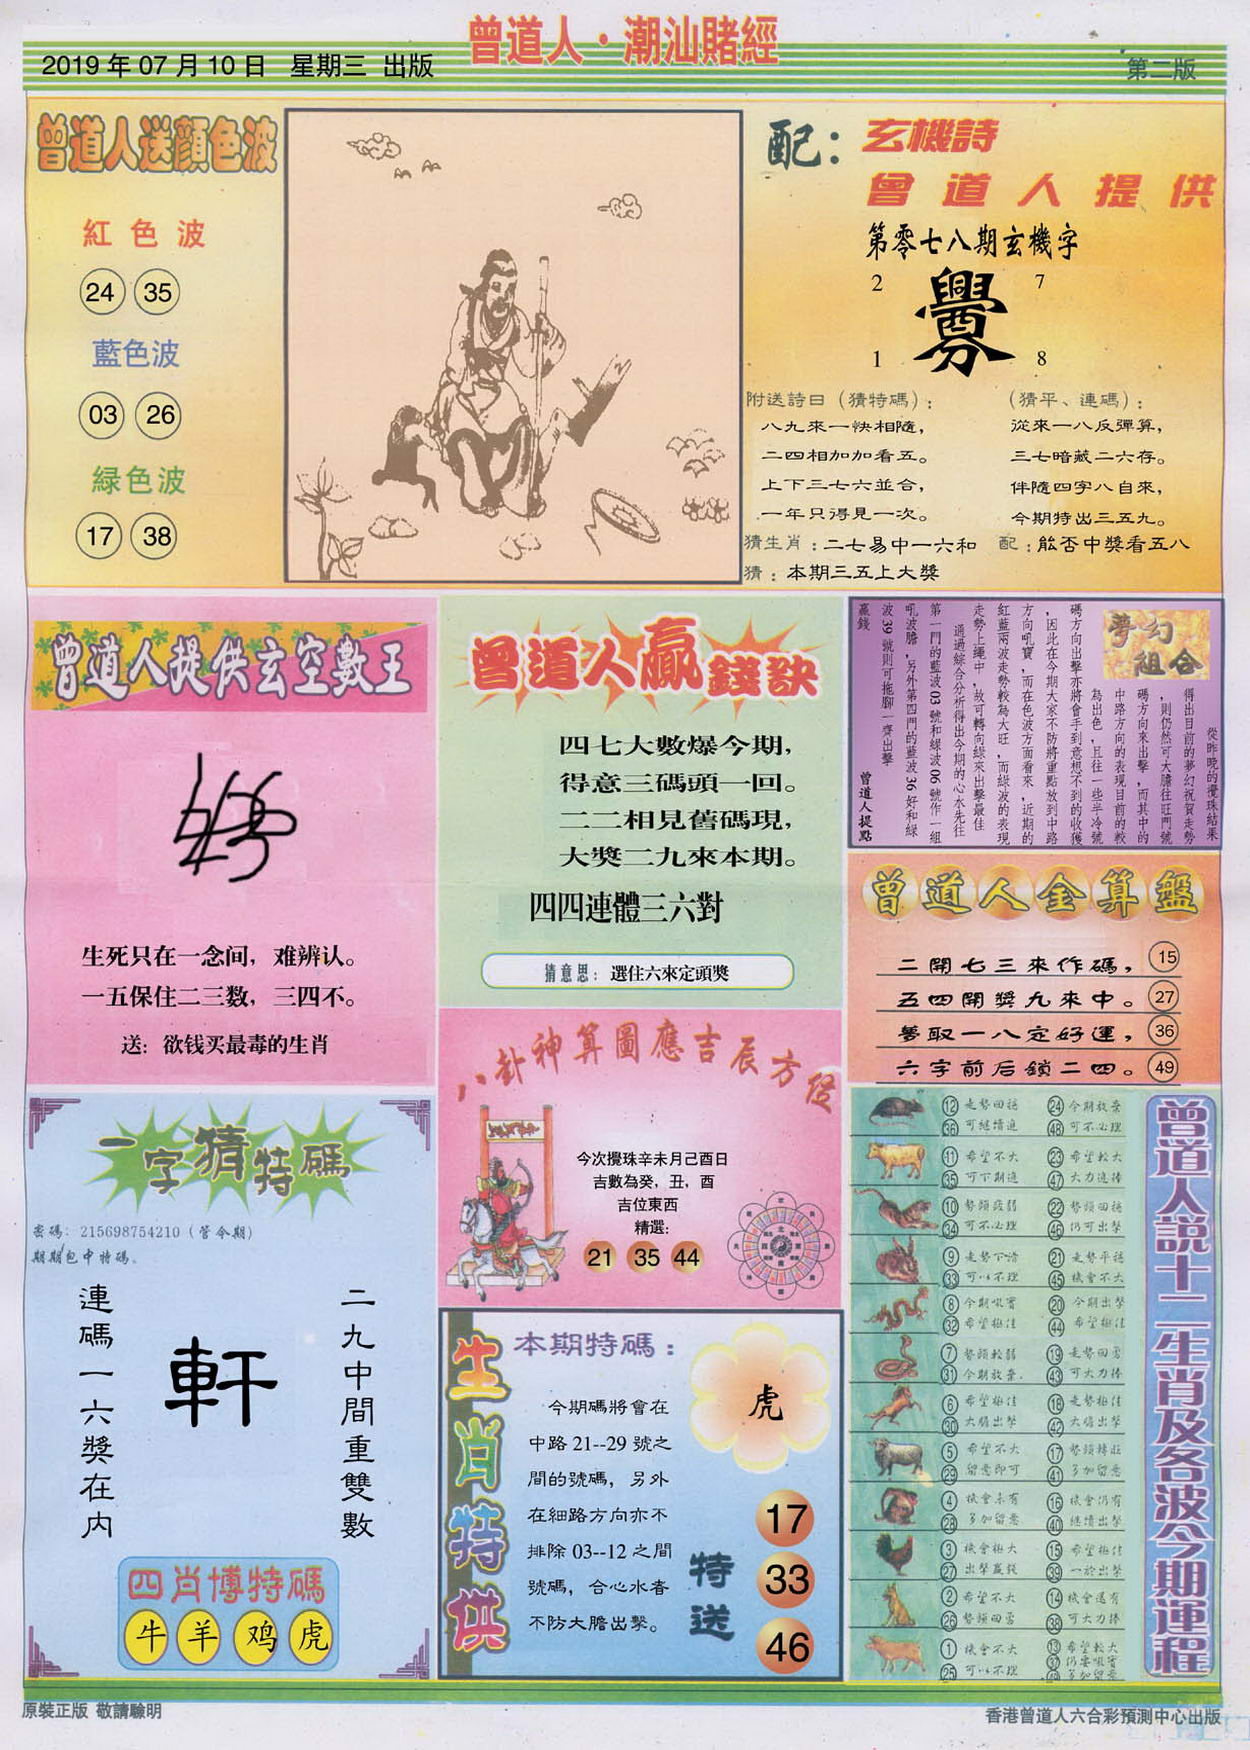 曾道人·潮汕賭經
2019年07月10日 星期三 出版
第二版
曾道人送顏色波
紅色波
24 35
藍色波
03 26
緑色波
17 38
配:玄機詩
曾道人提供
第零七八期玄機字
2 7
爨
1 8
附送詩曰(猜特碼):
八九來一快相隨,
二四相加加看五。
上下三七六並合,
一年只得見一次。
(猜平、連碼):
從來一八反彈算,
三七暗藏二六存。
伴隨四字八自來,
今期特出三五九。
猜生肖:二七易中一六和 配:能否中獎看五八
猜:本期三五上大獎
曾道人提供玄空數王
生死只在一念间,难辨认。
一五保住二三数,三四不。
送:欲钱买最毒的生肖
曾道人贏錢訣
四七大數爆今期,
得意三碼頭一回。
二二相見舊碼現,
大獎二九來本期。
四四連體三六對
猜意思:選住六來定頭獎
夢幻組合
從昨晚的攪珠結果
得出目前的夢幻祝賀走勢
,則仍然可大膽往旺門號
碼方向來出擊,而其中的
中路方向的表現目前的較
為出色,且往一些半冷號
碼方向出擊亦將會手到意想不到的收獲
,因此在今期大家不防將重點放到中路
方向吼寶,而在色波方面看來,近期的
紅藍兩波走勢較為大旺,而綠波的表現
走勢上繩中,故可轉向綠來出擊最佳
通過綜合分析得出今期的心水先往
第一門的藍波03號和綠波06號作一組
吼波膽,另外第四門的藍波36好和綠
波39號則可拖腳一齊出擊
贏錢
曾道人提點
曾道人金算盤
二開七三來作碼, 15
五四開獎九來中。 27
夢取一八定好運, 36
六字前后鎖二四。 49
八卦神算圖應吉辰方位
今次攪珠辛未月己酉日
吉數為癸,丑,酉
吉位東西
精選:
21 35 44
一字猜特碼
密碼:215698754210(管令期)
期期包中特碼。
二九中間重雙數
軒
連碼一六獎在内
四肖博特碼
牛 羊 鸡 虎
生肖特供
本期特碼:
虎
今期碼將會在
中路21--29號之
間的號碼,另外
在細路方向亦不
排除03--12之間
號碼,合心水者
不防大膽出擊。
特送
17
33
46
曾道人説十二生肖及各波今期運程
12 走勢回穩 24 今期放棄
36 可継續追 48 可不必理
11 希望不大 23 希望較大
35 可下期追 47 大力追捧
10 勢頭疲弱 22 勢頭回穩
34 可不必理 46 仍可出擊
9 走勢下滑 21 走勢平穩
33 可以不理 45 機會不大
8 今期吸寶 20 今期出擊
32 希望極佳 44 希望極佳
7 勢頭較弱 19 走勢回勇
31 今期放棄. 43 可大力捧
6 希望極佳 18 走勢極佳
30 大膽出擊 42 大膽出擊
5 希望不大 17 勢頭轉旺
29 留意即可 41 多加留意
4 機會未有 16 機會仍有
28 多加留意 40 継續出擊
3 機會極大 15 希望極佳
27 出擊贏錢 39 一於出擊
2 希望不大 14 機會還有
26 勢頭回勇 38 可大力捧
1 機會不大 13 希望較大
25 可以不理 37 仍要吸寶
49 多加留意
原裝正版 敬請驗明
香港曾道人六合彩預測中心出版